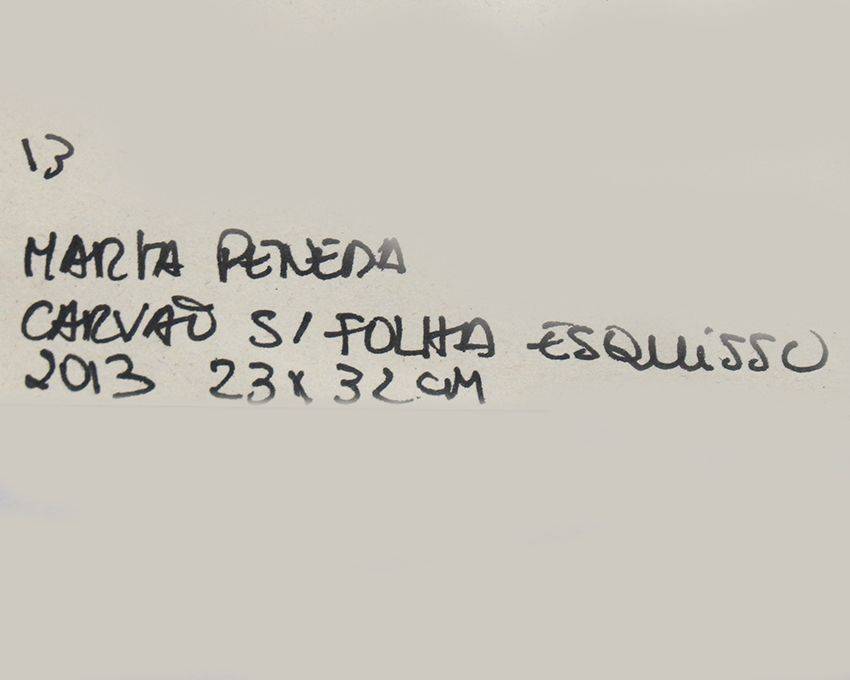 13
MARTA PENEDA
CARVÃO S/ FOLHA ESQUISSO
2013 23 x 32 CM